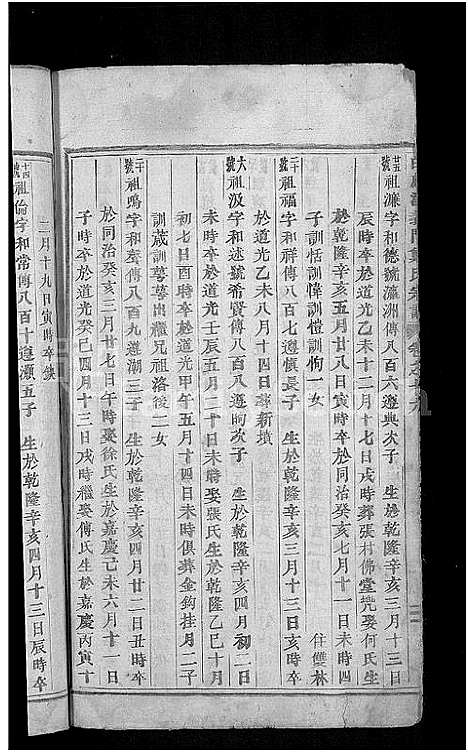 廿五號祖濂字和德號瀛洲傳八百六遵典次子 生於乾隆辛亥三月十三日
辰時卒於道光乙未十二月十七日戌時葬張村佛堂凳娶何氏生
於乾隆辛亥五月廿八日寅時卒於同治癸亥七月十一日未時四
子訓恬訓愇訓愷訓恂一女 住雙林
二十號祖福字和祥傳八百七遵慎長子 生於乾隆辛亥三月
大號祖汲字和述號希賢傳八百八遵昫次子 生於乾隆辛亥四月初二日
未時卒於道光壬辰五月二十日未時娶張氏生於乾隆乙巳十月
初七日酉時卒於道光甲午五月十四日未時俱葬金鈎挂月二子
訓葳訓萼萼出繼兄祖洛後二女
二十號祖鳴字和聲傳八百九遵潮三子 生於乾隆辛亥四月廿二日丑時卒
於同治癸亥三月廿七日午時娶徐氏生於嘉慶己未六月十一日
子時卒於道光癸巳四月十三日戌時繼娶傅氏生於嘉慶丙寅十
二月十九日寅時卒缺
十四號祖倫字和常傳八百十遵灝五子 生於乾隆辛亥四月十三日辰時卒
於道光乙未八月十四日葬新墳